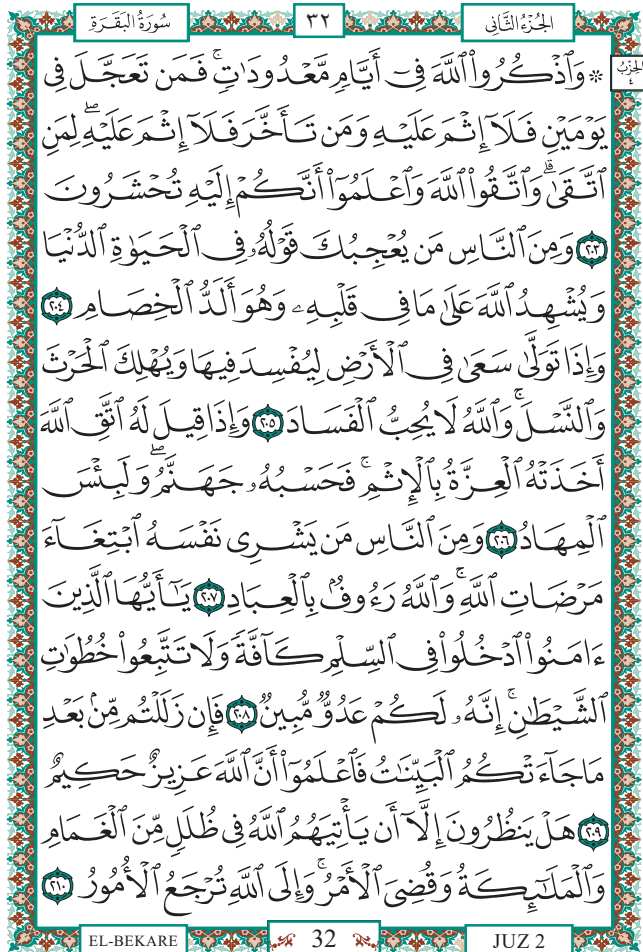 سُورَةُ البَقَرَةِ ٣٢ الجُزْءُ الثَّانِي
الحِزْبُ ٤
۞ وَٱذْكُرُوا۟ ٱللَّهَ فِىٓ أَيَّامٍ مَّعْدُودَٰتٍ ۚ فَمَن تَعَجَّلَ فِى
يَوْمَيْنِ فَلَآ إِثْمَ عَلَيْهِ وَمَن تَأَخَّرَ فَلَآ إِثْمَ عَلَيْهِ ۖ لِمَنِ
ٱتَّقَىٰ ۗ وَٱتَّقُوا۟ ٱللَّهَ وَٱعْلَمُوٓا۟ أَنَّكُمْ إِلَيْهِ تُحْشَرُونَ
٢٠٣ وَمِنَ ٱلنَّاسِ مَن يُعْجِبُكَ قَوْلُهُۥ فِى ٱلْحَيَوٰةِ ٱلدُّنْيَا
وَيُشْهِدُ ٱللَّهَ عَلَىٰ مَا فِى قَلْبِهِۦ وَهُوَ أَلَدُّ ٱلْخِصَامِ ٢٠٤
وَإِذَا تَوَلَّىٰ سَعَىٰ فِى ٱلْأَرْضِ لِيُفْسِدَ فِيهَا وَيُهْلِكَ ٱلْحَرْثَ
وَٱلنَّسْلَ ۗ وَٱللَّهُ لَا يُحِبُّ ٱلْفَسَادَ ٢٠٥ وَإِذَا قِيلَ لَهُ ٱتَّقِ ٱللَّهَ
أَخَذَتْهُ ٱلْعِزَّةُ بِٱلْإِثْمِ ۚ فَحَسْبُهُۥ جَهَنَّمُ ۖ وَلَبِئْسَ
ٱلْمِهَادُ ٢٠٦ وَمِنَ ٱلنَّاسِ مَن يَشْرِى نَفْسَهُ ٱبْتِغَآءَ
مَرْضَاتِ ٱللَّهِ ۗ وَٱللَّهُ رَءُوفٌۢ بِٱلْعِبَادِ ٢٠٧ يَـٰٓأَيُّهَا ٱلَّذِينَ
ءَامَنُوا۟ ٱدْخُلُوا۟ فِى ٱلسِّلْمِ كَآفَّةً وَلَا تَتَّبِعُوا۟ خُطُوَٰتِ
ٱلشَّيْطَـٰنِ ۚ إِنَّهُۥ لَكُمْ عَدُوٌّ مُّبِينٌ ٢٠٨ فَإِن زَلَلْتُم مِّنۢ بَعْدِ
مَا جَآءَتْكُمُ ٱلْبَيِّنَـٰتُ فَٱعْلَمُوٓا۟ أَنَّ ٱللَّهَ عَزِيزٌ حَكِيمٌ
٢٠٩ هَلْ يَنظُرُونَ إِلَّآ أَن يَأْتِيَهُمُ ٱللَّهُ فِى ظُلَلٍ مِّنَ ٱلْغَمَامِ
وَٱلْمَلَـٰٓئِكَةُ وَقُضِىَ ٱلْأَمْرُ ۚ وَإِلَى ٱللَّهِ تُرْجَعُ ٱلْأُمُورُ ٢١٠
EL-BEKARE 32 JUZ 2